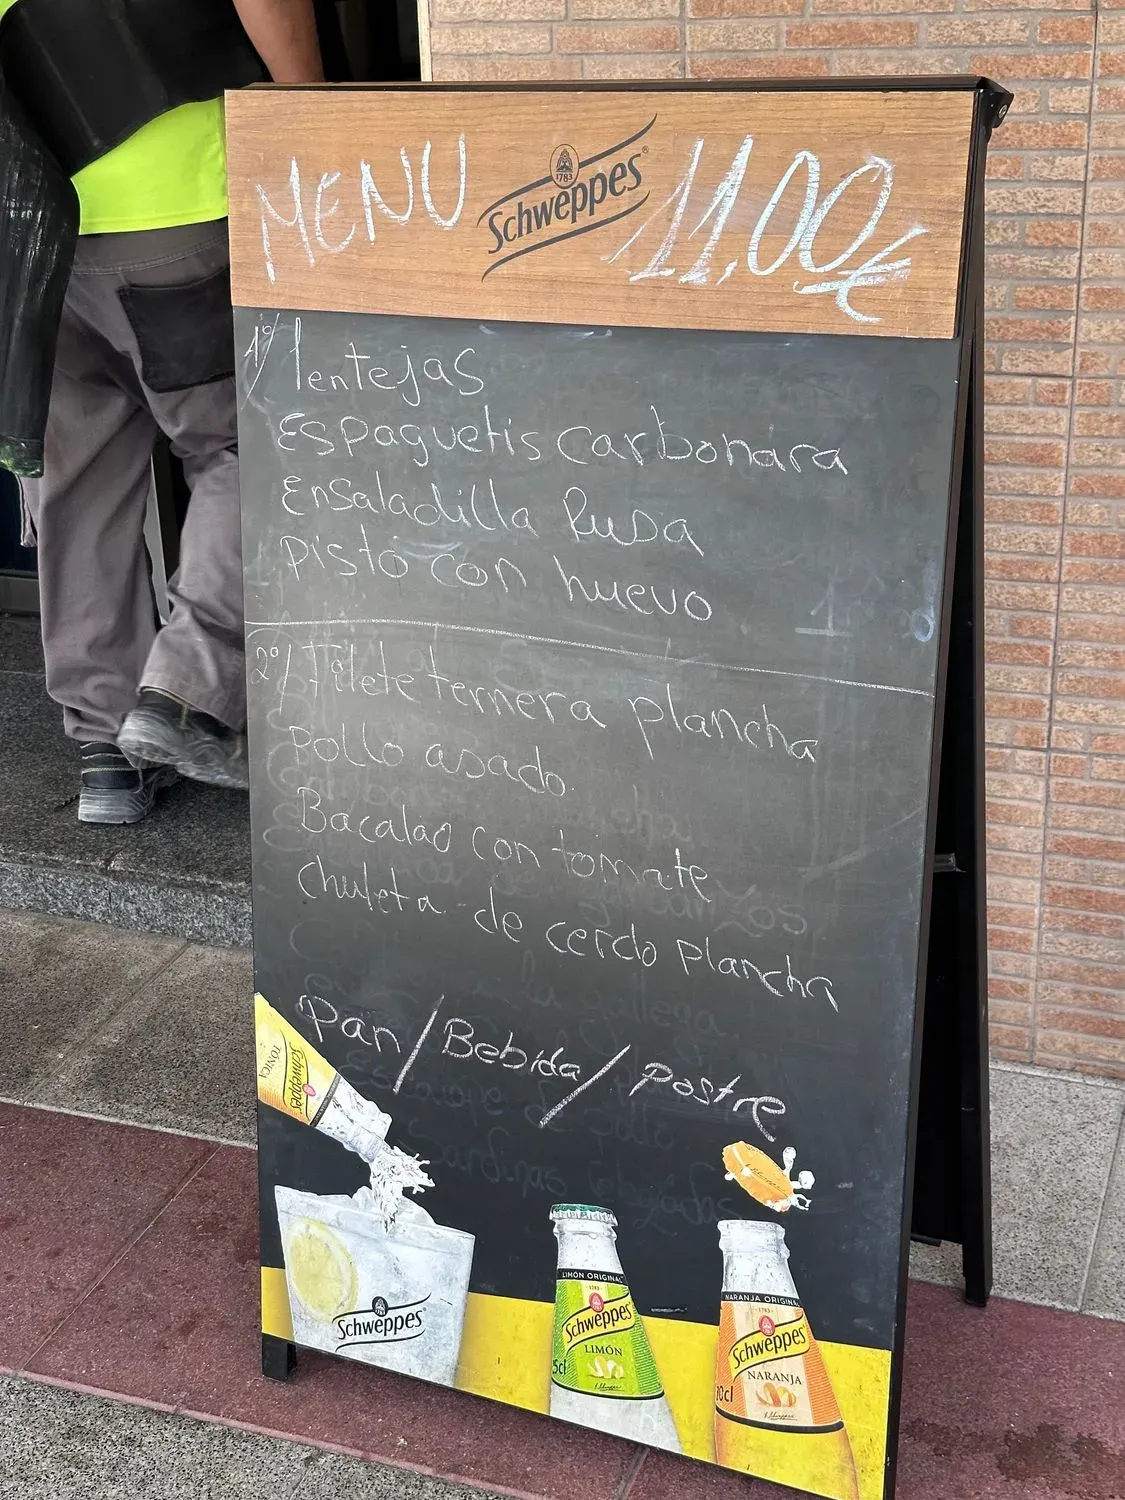 MENU
1783
Schweppes®
11,00€
1º/ lentejas
Espaguetis carbonara
Ensaladilla Rusa
Pisto con huevo
2º/ Filete ternera plancha
Pollo asado
Bacalao con tomate
Chuleta de cerdo plancha
Pan/Bebida/Postre
Schweppes
Schweppes
LIMÓN ORIGINAL
1783
Schweppes
LIMÓN
NARANJA ORIGINAL
1783
Schweppes
NARANJA